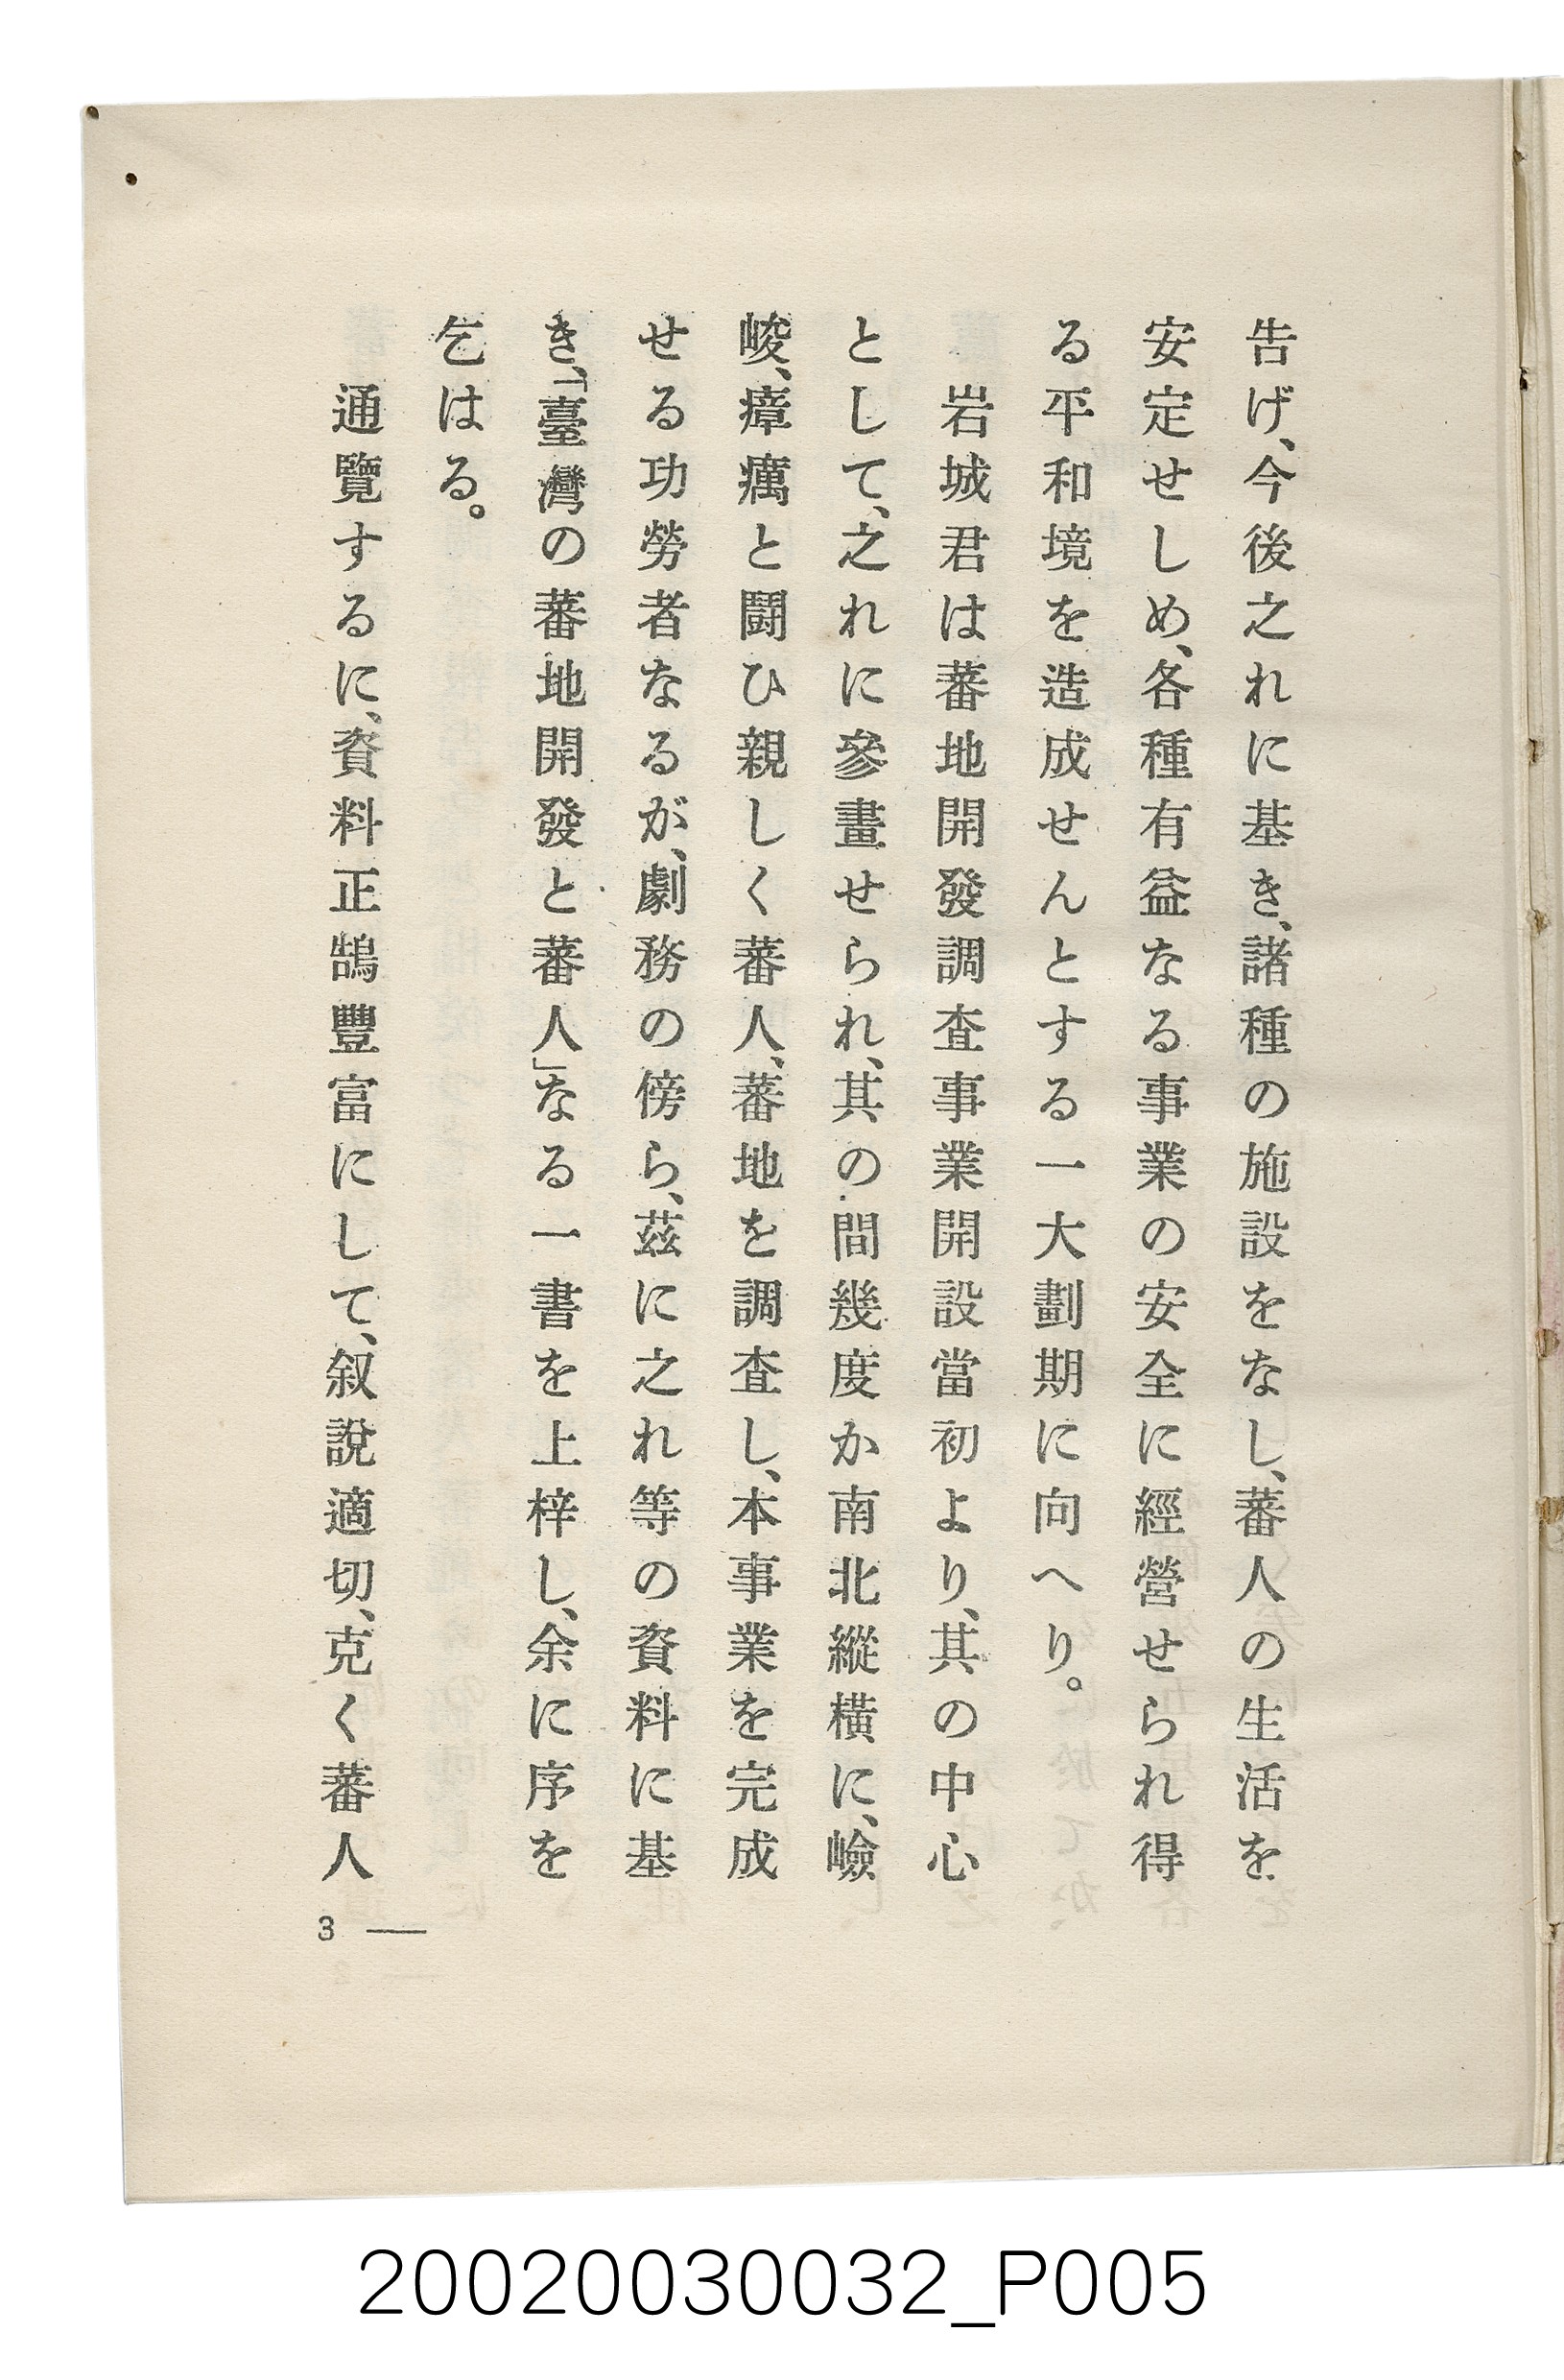 告げ、今後之れに基き、諸種の施設をなし、蕃人の生活を
安定せしめ、各種有益なる事業の安全に經營せられ得
る平和境を造成せんとする一大劃期に向へり。
岩城君は蕃地開發調査事業開設當初より、其の中心
として、之れに參畫せられ、其の間幾度か南北縱橫に、嶮
峻、瘴癘と鬪ひ親しく蕃人、蕃地を調査し、本事業を完成
せる功勞者なるが、劇務の傍ら、茲に之れ等の資料に基
き、「臺灣の蕃地開發と蕃人」なる一書を上梓し、余に序を
乞はる。
通覽するに、資料正鵠豐富にして、叙說適切、克く蕃人
3 —
20020030032_P005